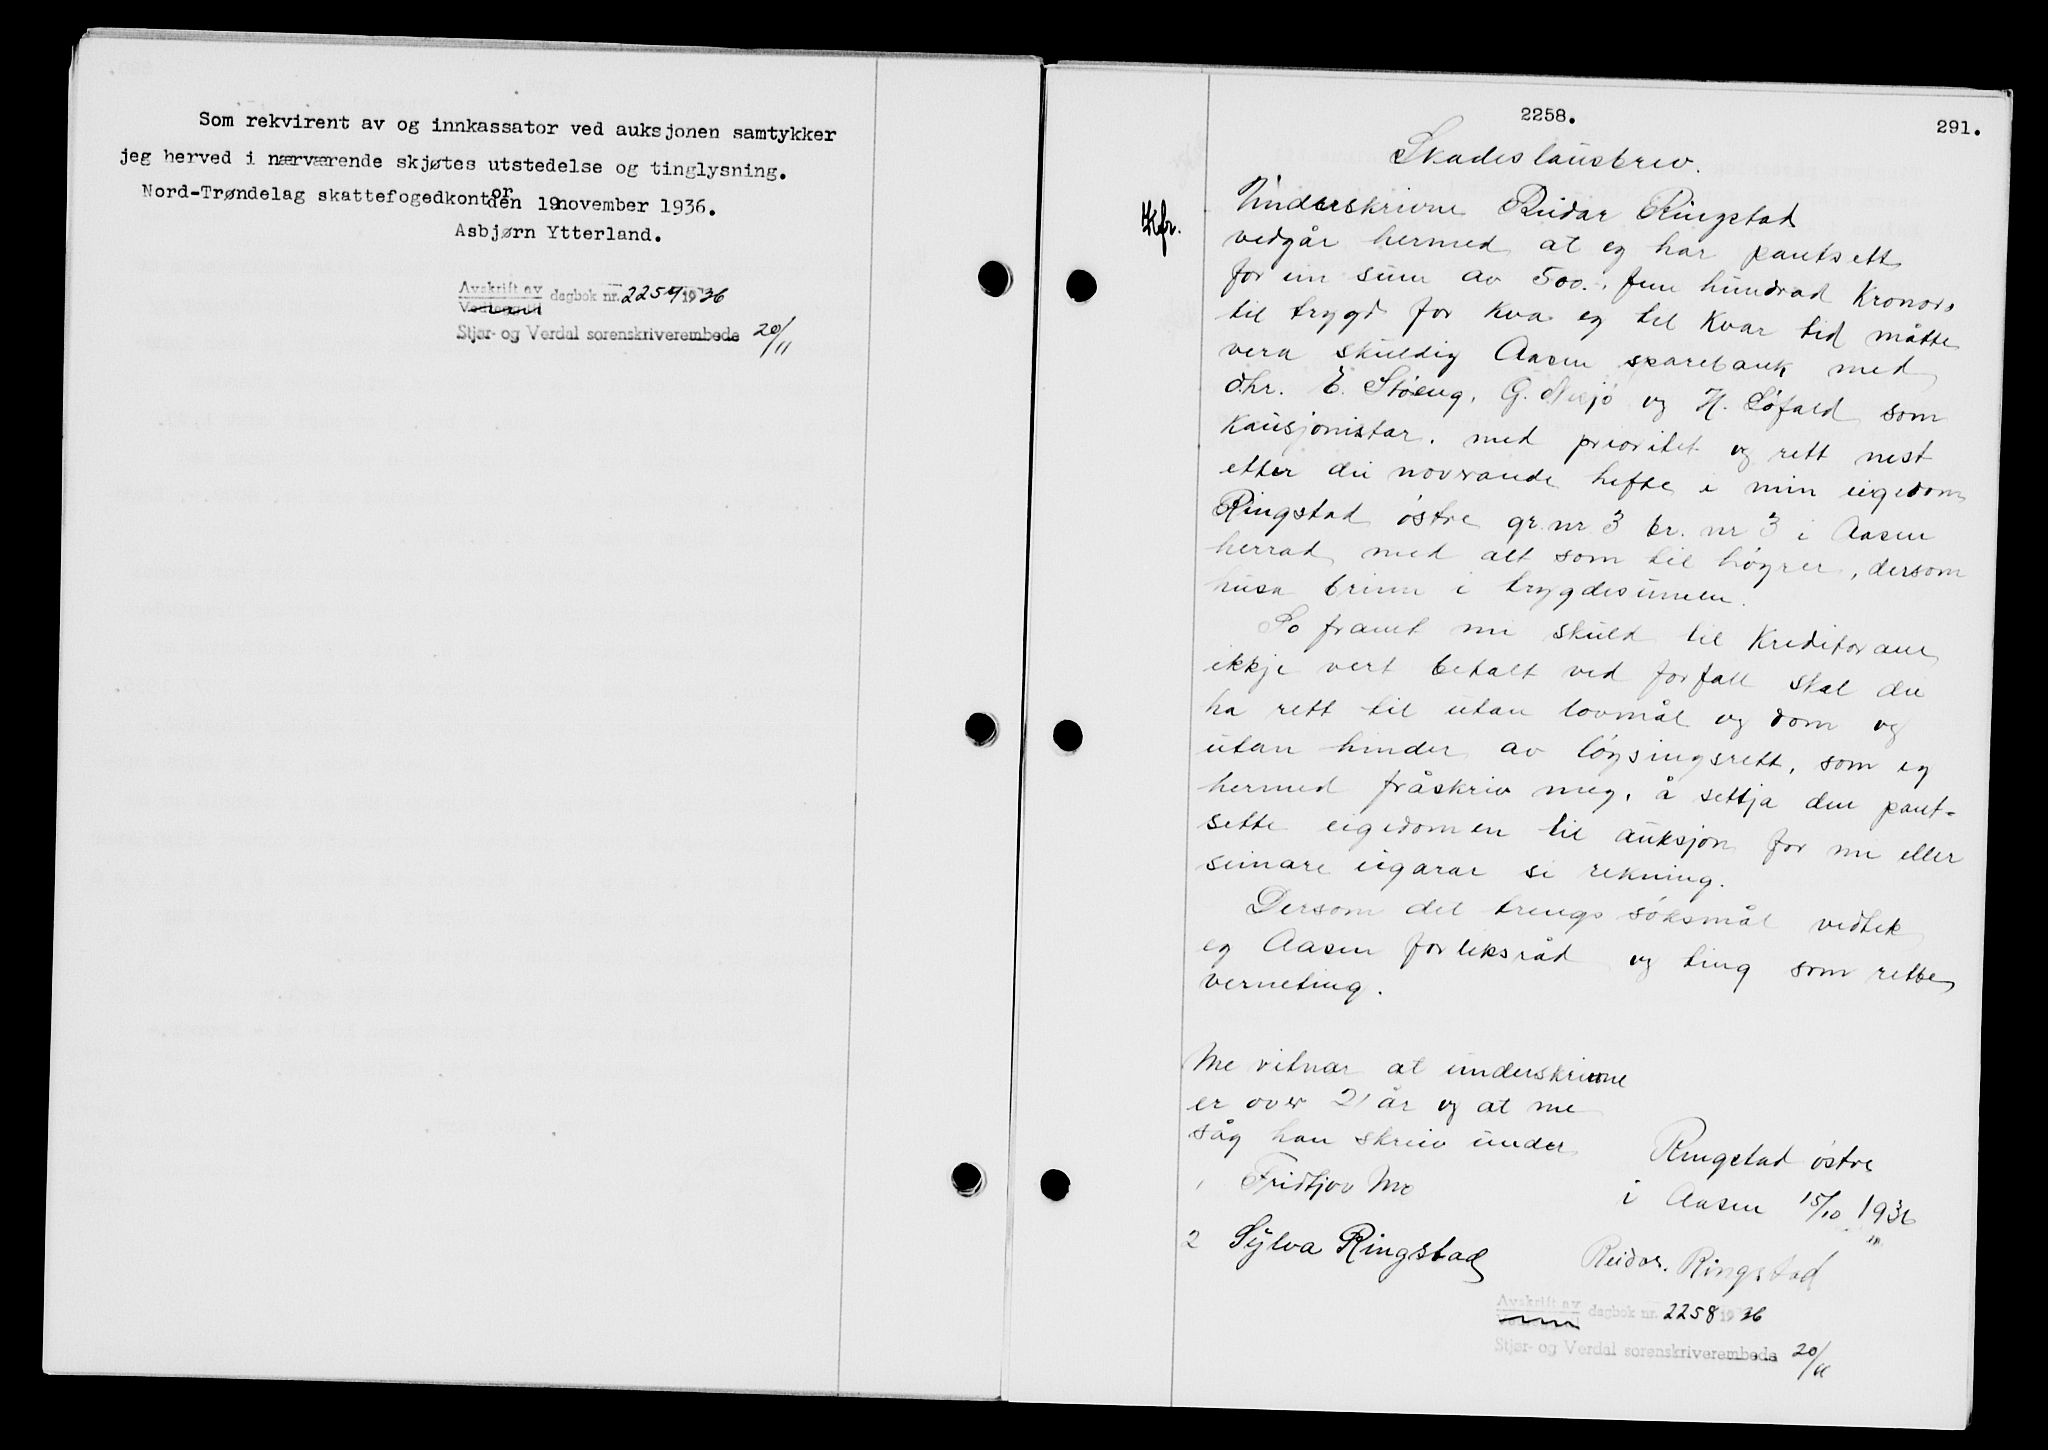 Som rekvirent av og innkassator ved auksjonen samtykker
jeg herved i nærværende skjøtes utstedelse og tinglysning.
Nord-Trøndelag skattefogedkontor den 19 november 1936.
Asbjørn Ytterland.
Avskrift av dagbok nr. 1936
Stjør- og Verdal sorenskriverembede 20/11
2258.
291.
Skadeslausbrev.
Kfr.
Underskrivne Reidar Ringstad
vedgår hermed at eg har pantsett
for ein sum av 500.- fem hundrad Kronor,
til trygd for kva eg til kvar tid måtte
vera skuldig Aasen sparebank med
d.hr. E. Støeng, G. og H. Løfald som
kausjonistar. med prioritet og rett nest
etter dei noverande hefte i min eigedom
Ringstad østre gr. nr 3 br. nr 3 i Aasen
herrad med alt som til høyrer, dersom
husa brinn i trygdesumen.
So framt mi skuld til Kreditorane
ikkje vert betalt ved forfall skal dei
ha rett til utan lovmål og dom og
utan hinder av løysingsrett, som eg
hermed fråskriv meg, å settja den pant-
sette eigedomen til auksjon for mi eller
seinare eigarar si rekning.
Dersom det trengs søksmål vedtek
eg Aasen forliksråd og ting som rette
verneting.
Me vitnar at underskrivne
er over 21 år og at me
såg han skreiv under
1 Fridtjov Mo
2 Sylva Ringstad
Ringstad østre
i Aasen 15/10 1936
Reidar. Ringstad
Avskrift av dagbok nr. 2258 1936
Stjør- og Verdal sorenskriverembede 20/11